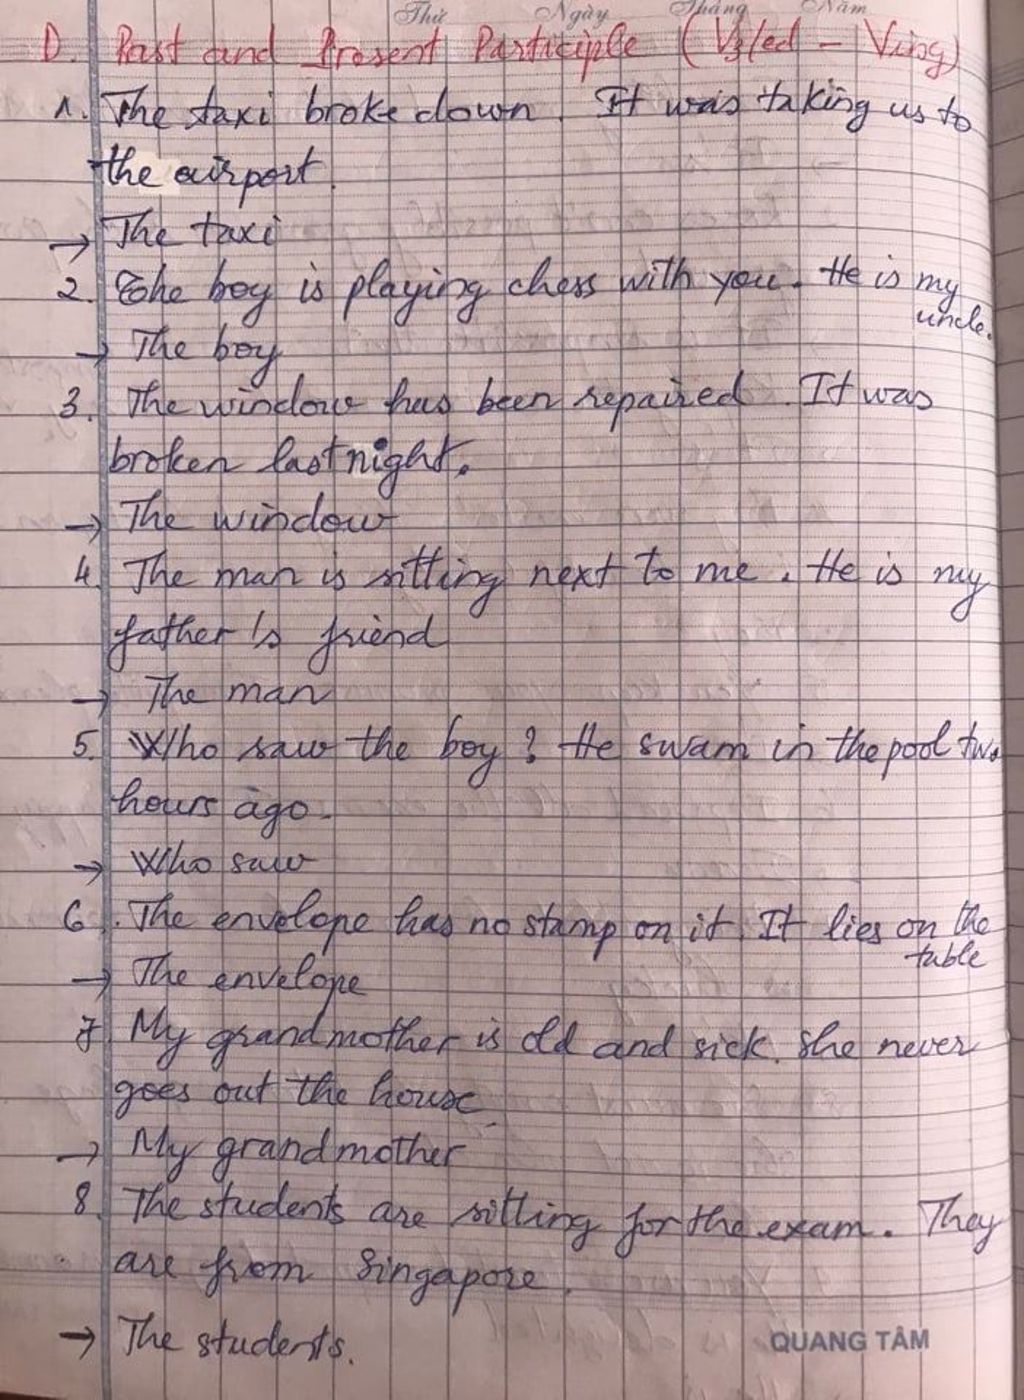 Thứ Ngày Tháng Năm
D. Past and Present Participle (V3/ed - Ving)
1. The taxi broke down. It was taking us to
the airport.
→ The taxi
2. The boy is playing chess with you. He is my
uncle.
→ The boy
3. The window has been repaired. It was
broken last night.
→ The window
4. The man is sitting next to me. He is my
father's friend
→ The man
5. Who saw the boy? He swam in the pool two
hours ago.
→ Who saw
6. The envelope has no stamp on it. It lies on the
table
→ The envelope
7 My grandmother is old and sick. She never
goes out the house
→ My grandmother
8. The students are sitting for the exam. They
are from Singapore.
→ The students.
QUANG TÂM